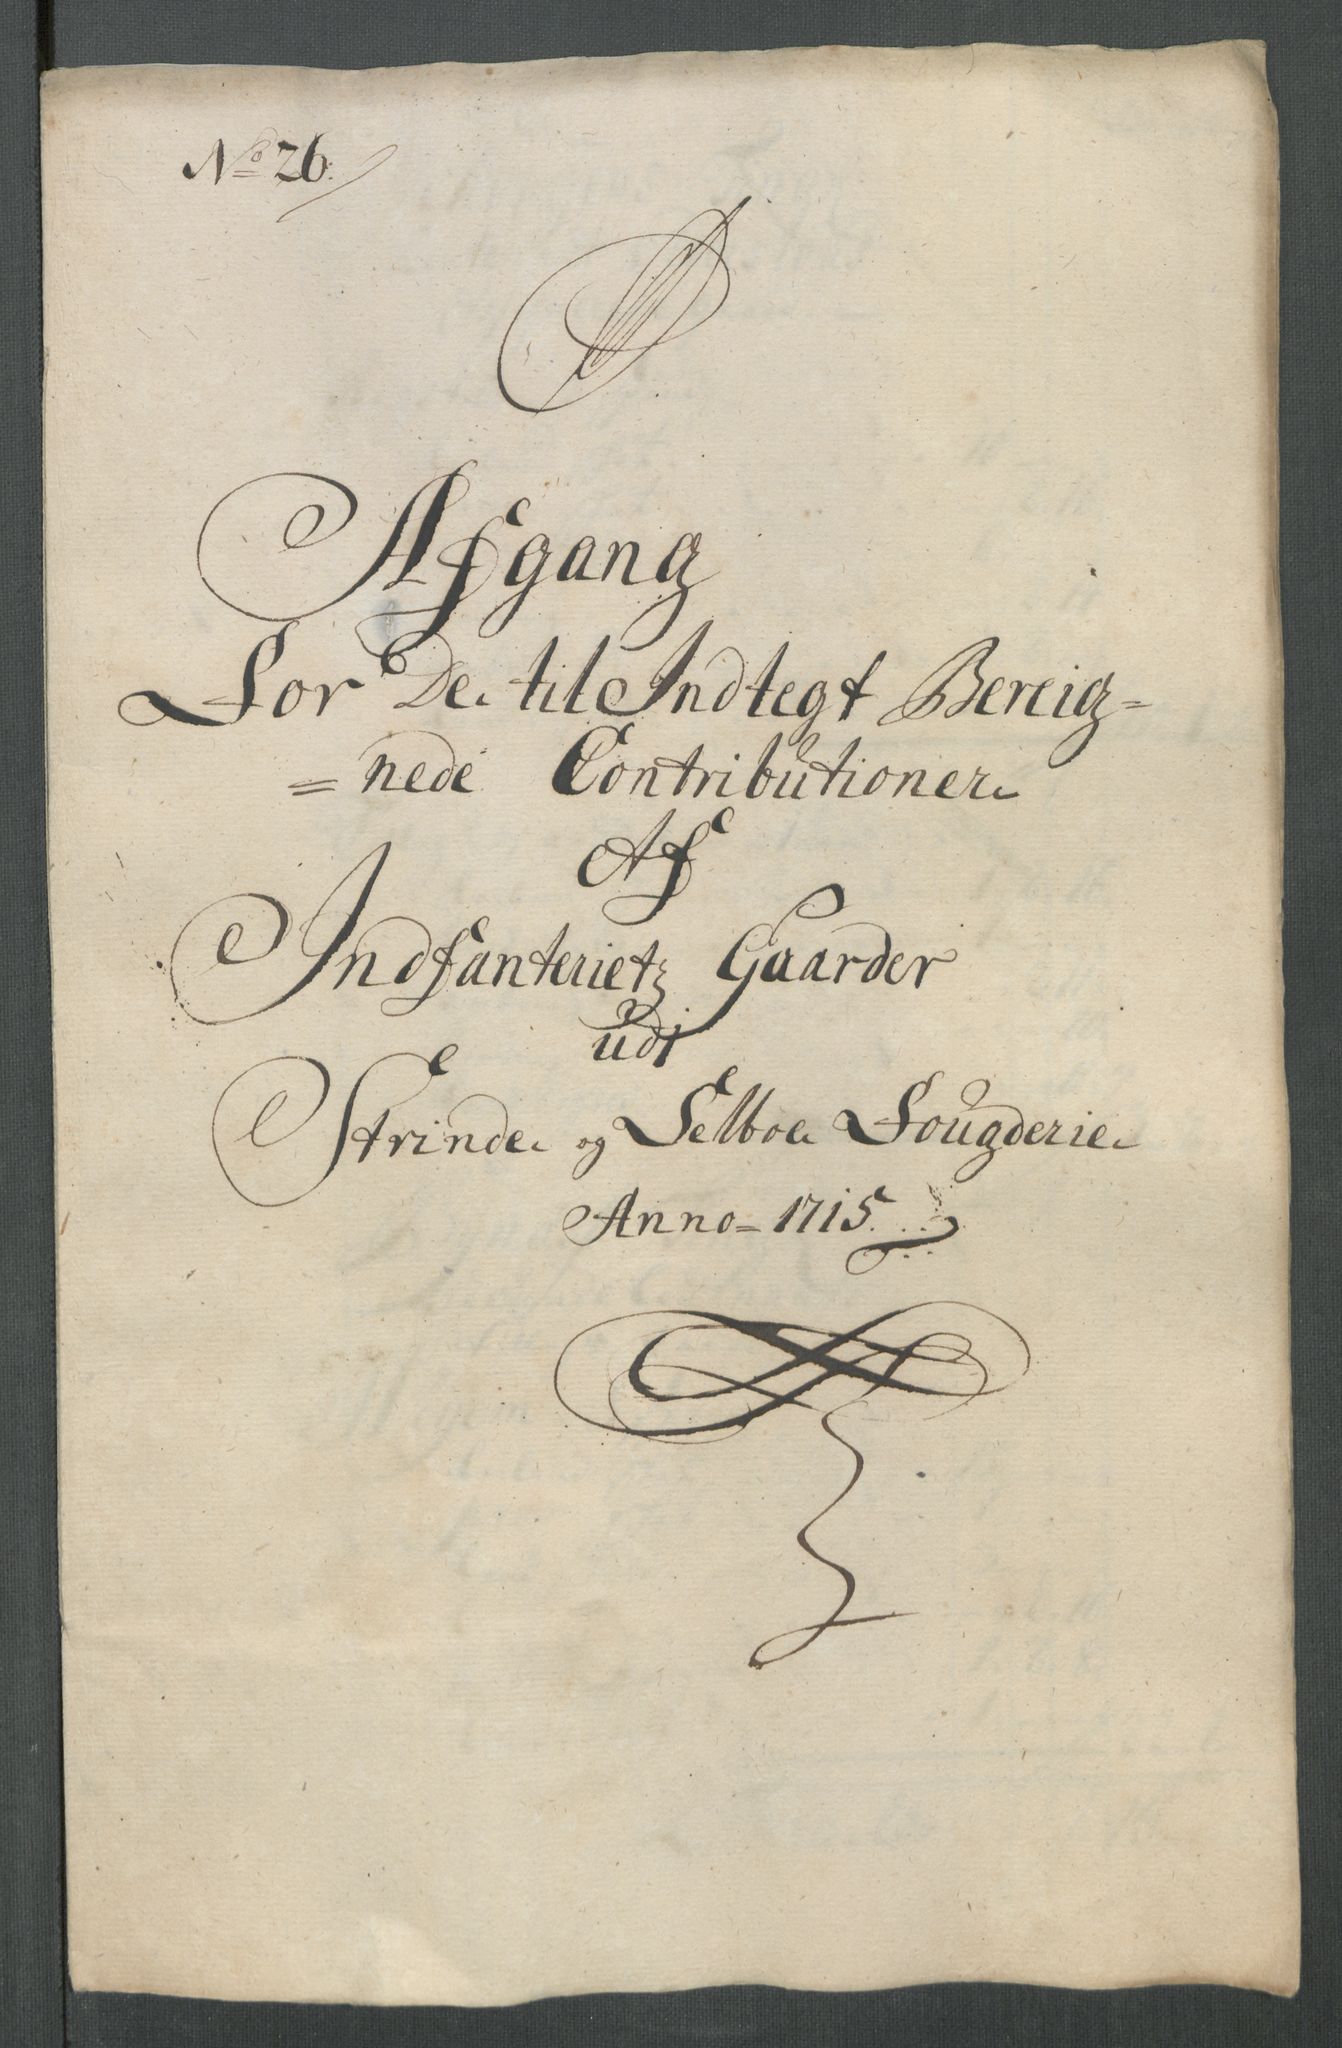 No 26.
Afgang
For De til Indtegt Bereig=
=nede Contributioner
Af
Indfanterietz Gaarder
udi
Strinde og Selboe Fougderie
Anno=1715.